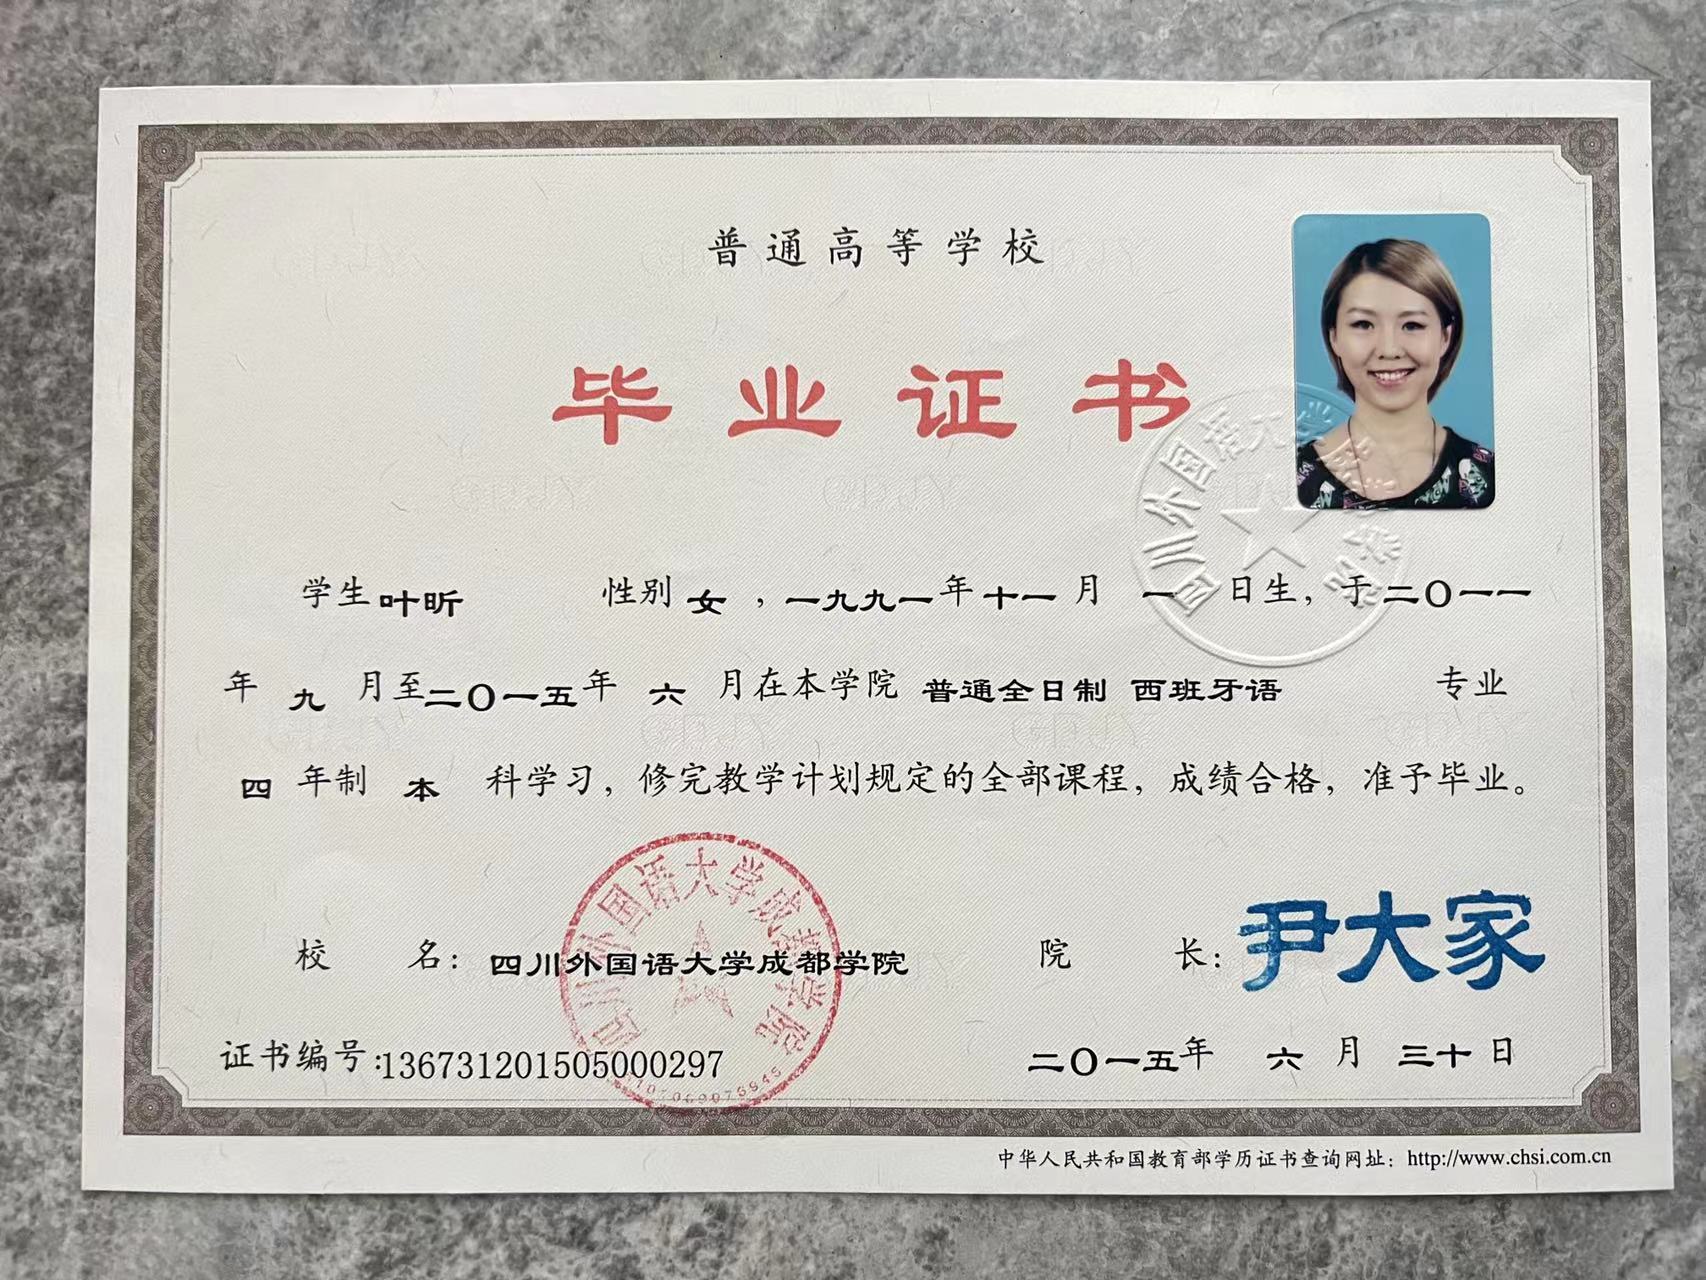 普通高等学校
毕业证书
学生 叶昕 性别 女 ，一九九一年 十一 月 一 日生，于二〇一一
年 九 月至二〇一五年 六 月在本学院 普通全日制 西班牙语 专业
四 年制 本 科学习，修完教学计划规定的全部课程，成绩合格，准予毕业。
四川外国语大学成都学院
校 名：四川外国语大学成都学院 院 长：尹大家
证书编号：136731201505000297 二〇一五年 六 月 三十 日
中华人民共和国教育部学历证书查询网址：http://www.chsi.com.cn